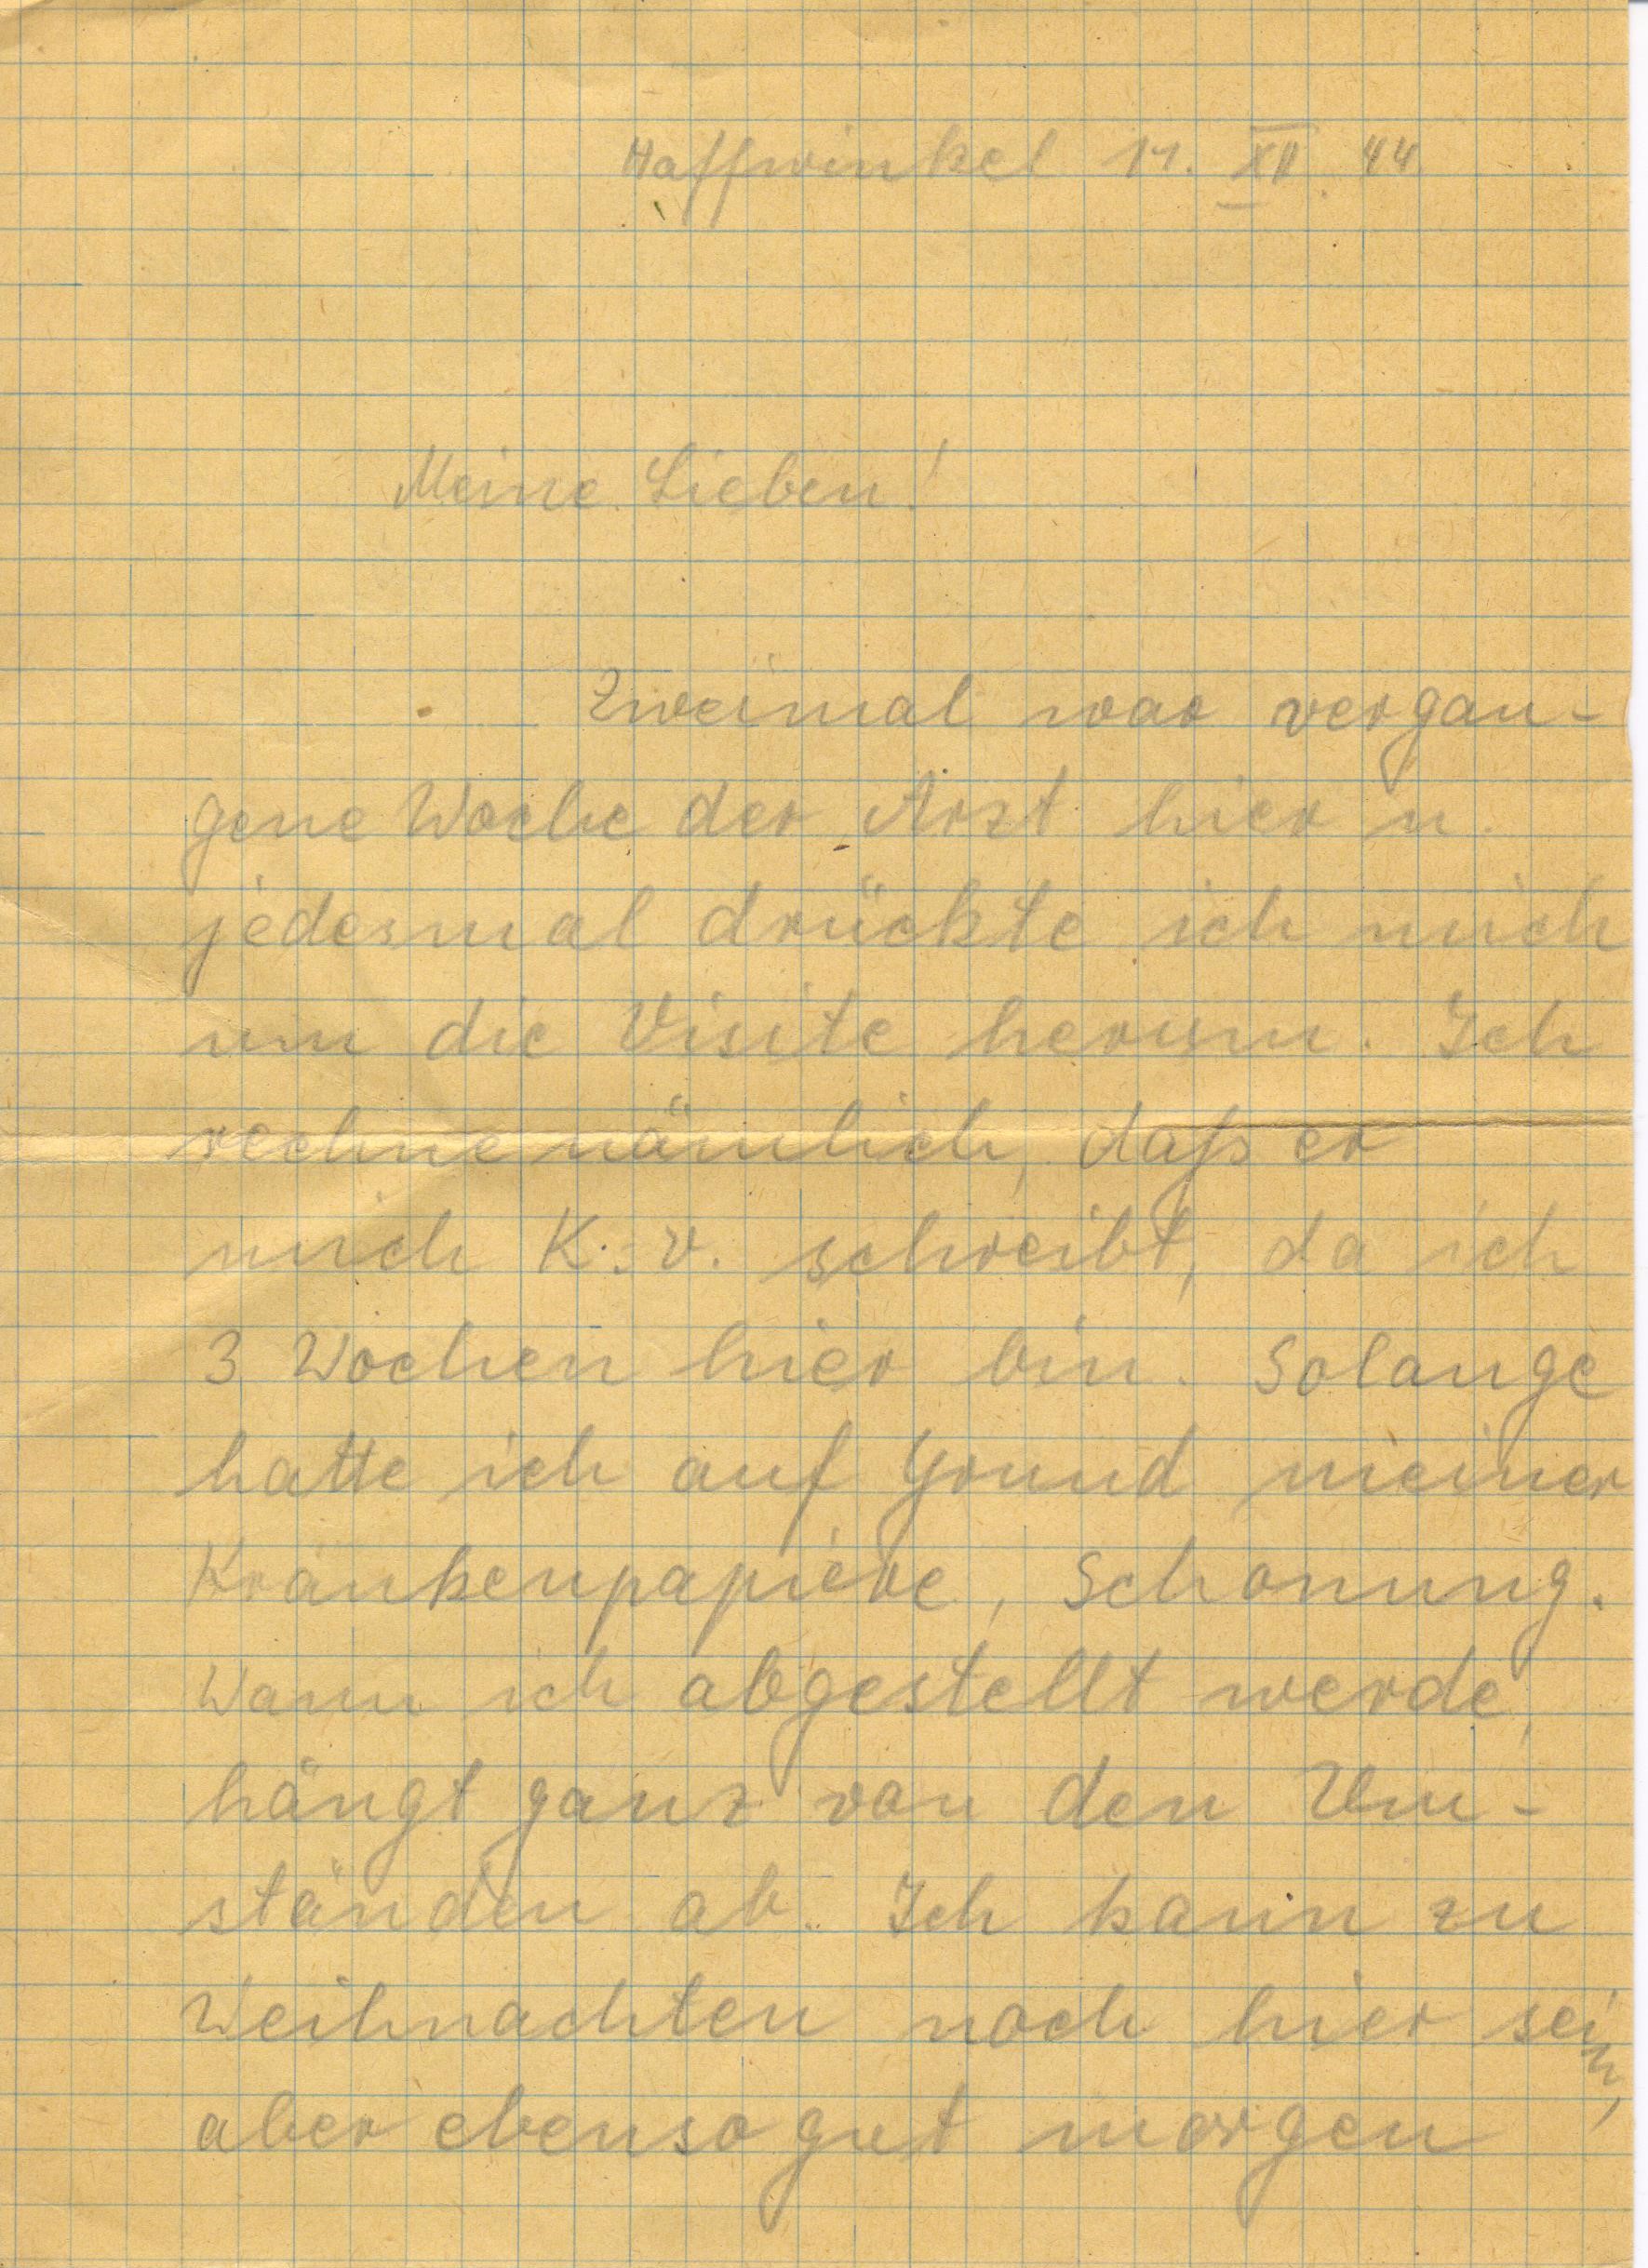 Haffwinkel 11. XII. 44
Meine Lieben!
Zweimal war vergan-
gene Woche der Arzt hier u.
jedesmal drückte ich mich
um die Visite herum. Ich
rechne nämlich, daß er
mich K. v. schreibt, da ich
3 Wochen hier bin. Solange
hatte ich auf Grund meiner
Krankenpapiere, Schonung.
Wann ich abgestellt werde,
hängt ganz von den Um-
ständen ab. Ich kann zu
Weihnachten noch hier sein,
aber ebensogut morgen